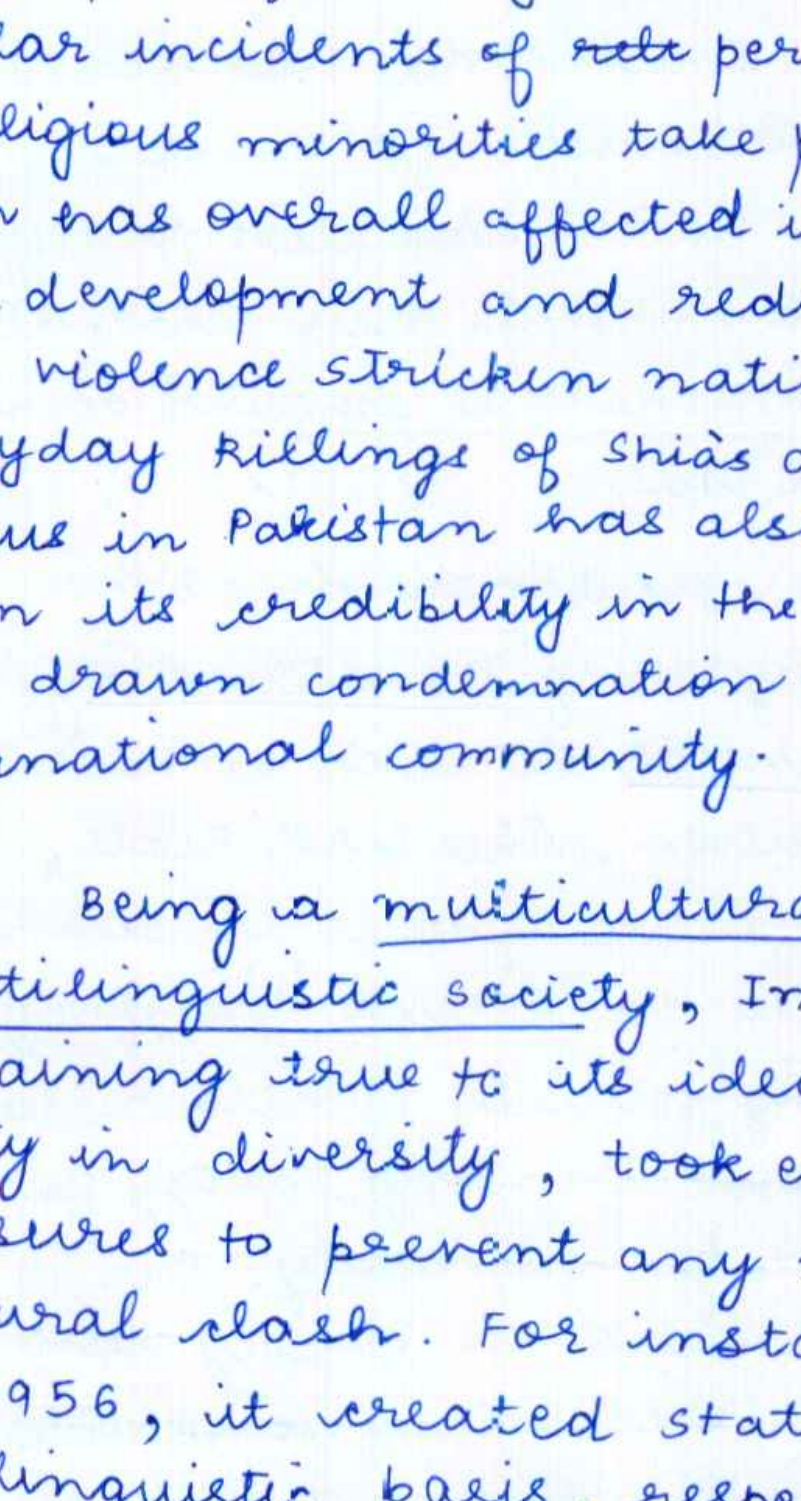 lar incidents of rele per
ligious minorities take p
n has overall affected i
development and red
violence stricken nati
yday killings of Shias
us in Pakistan has als
n its credibility in the
drawn condemnation
national community.
Being a multicultura
tilinguistic society, In
aining true to its idea
y in diversity, took e
sures to prevent any
ural clash. For insta
956, it created stat
linguistic basis, respe